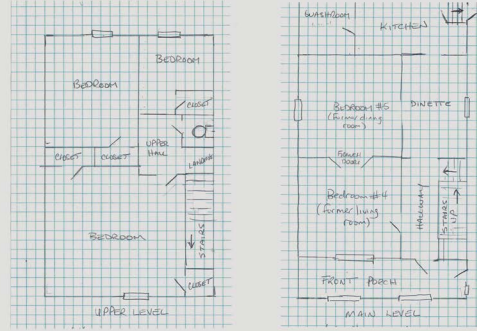 BEDROOM
BEDROOM
CLOSET
CLOSET
CLOSET
UPPER
HALL
LANDING
BEDROOM
STAIRS
CLOSET
UPPER LEVEL
WASHROOM
KITCHEN
BEDROOM #5
(former dining
room)
DINETTE
FRENCH
DOORS
Bedroom #4
(former living
room)
HALLWAY
STAIRS
UP
FRONT PORCH
MAIN LEVEL